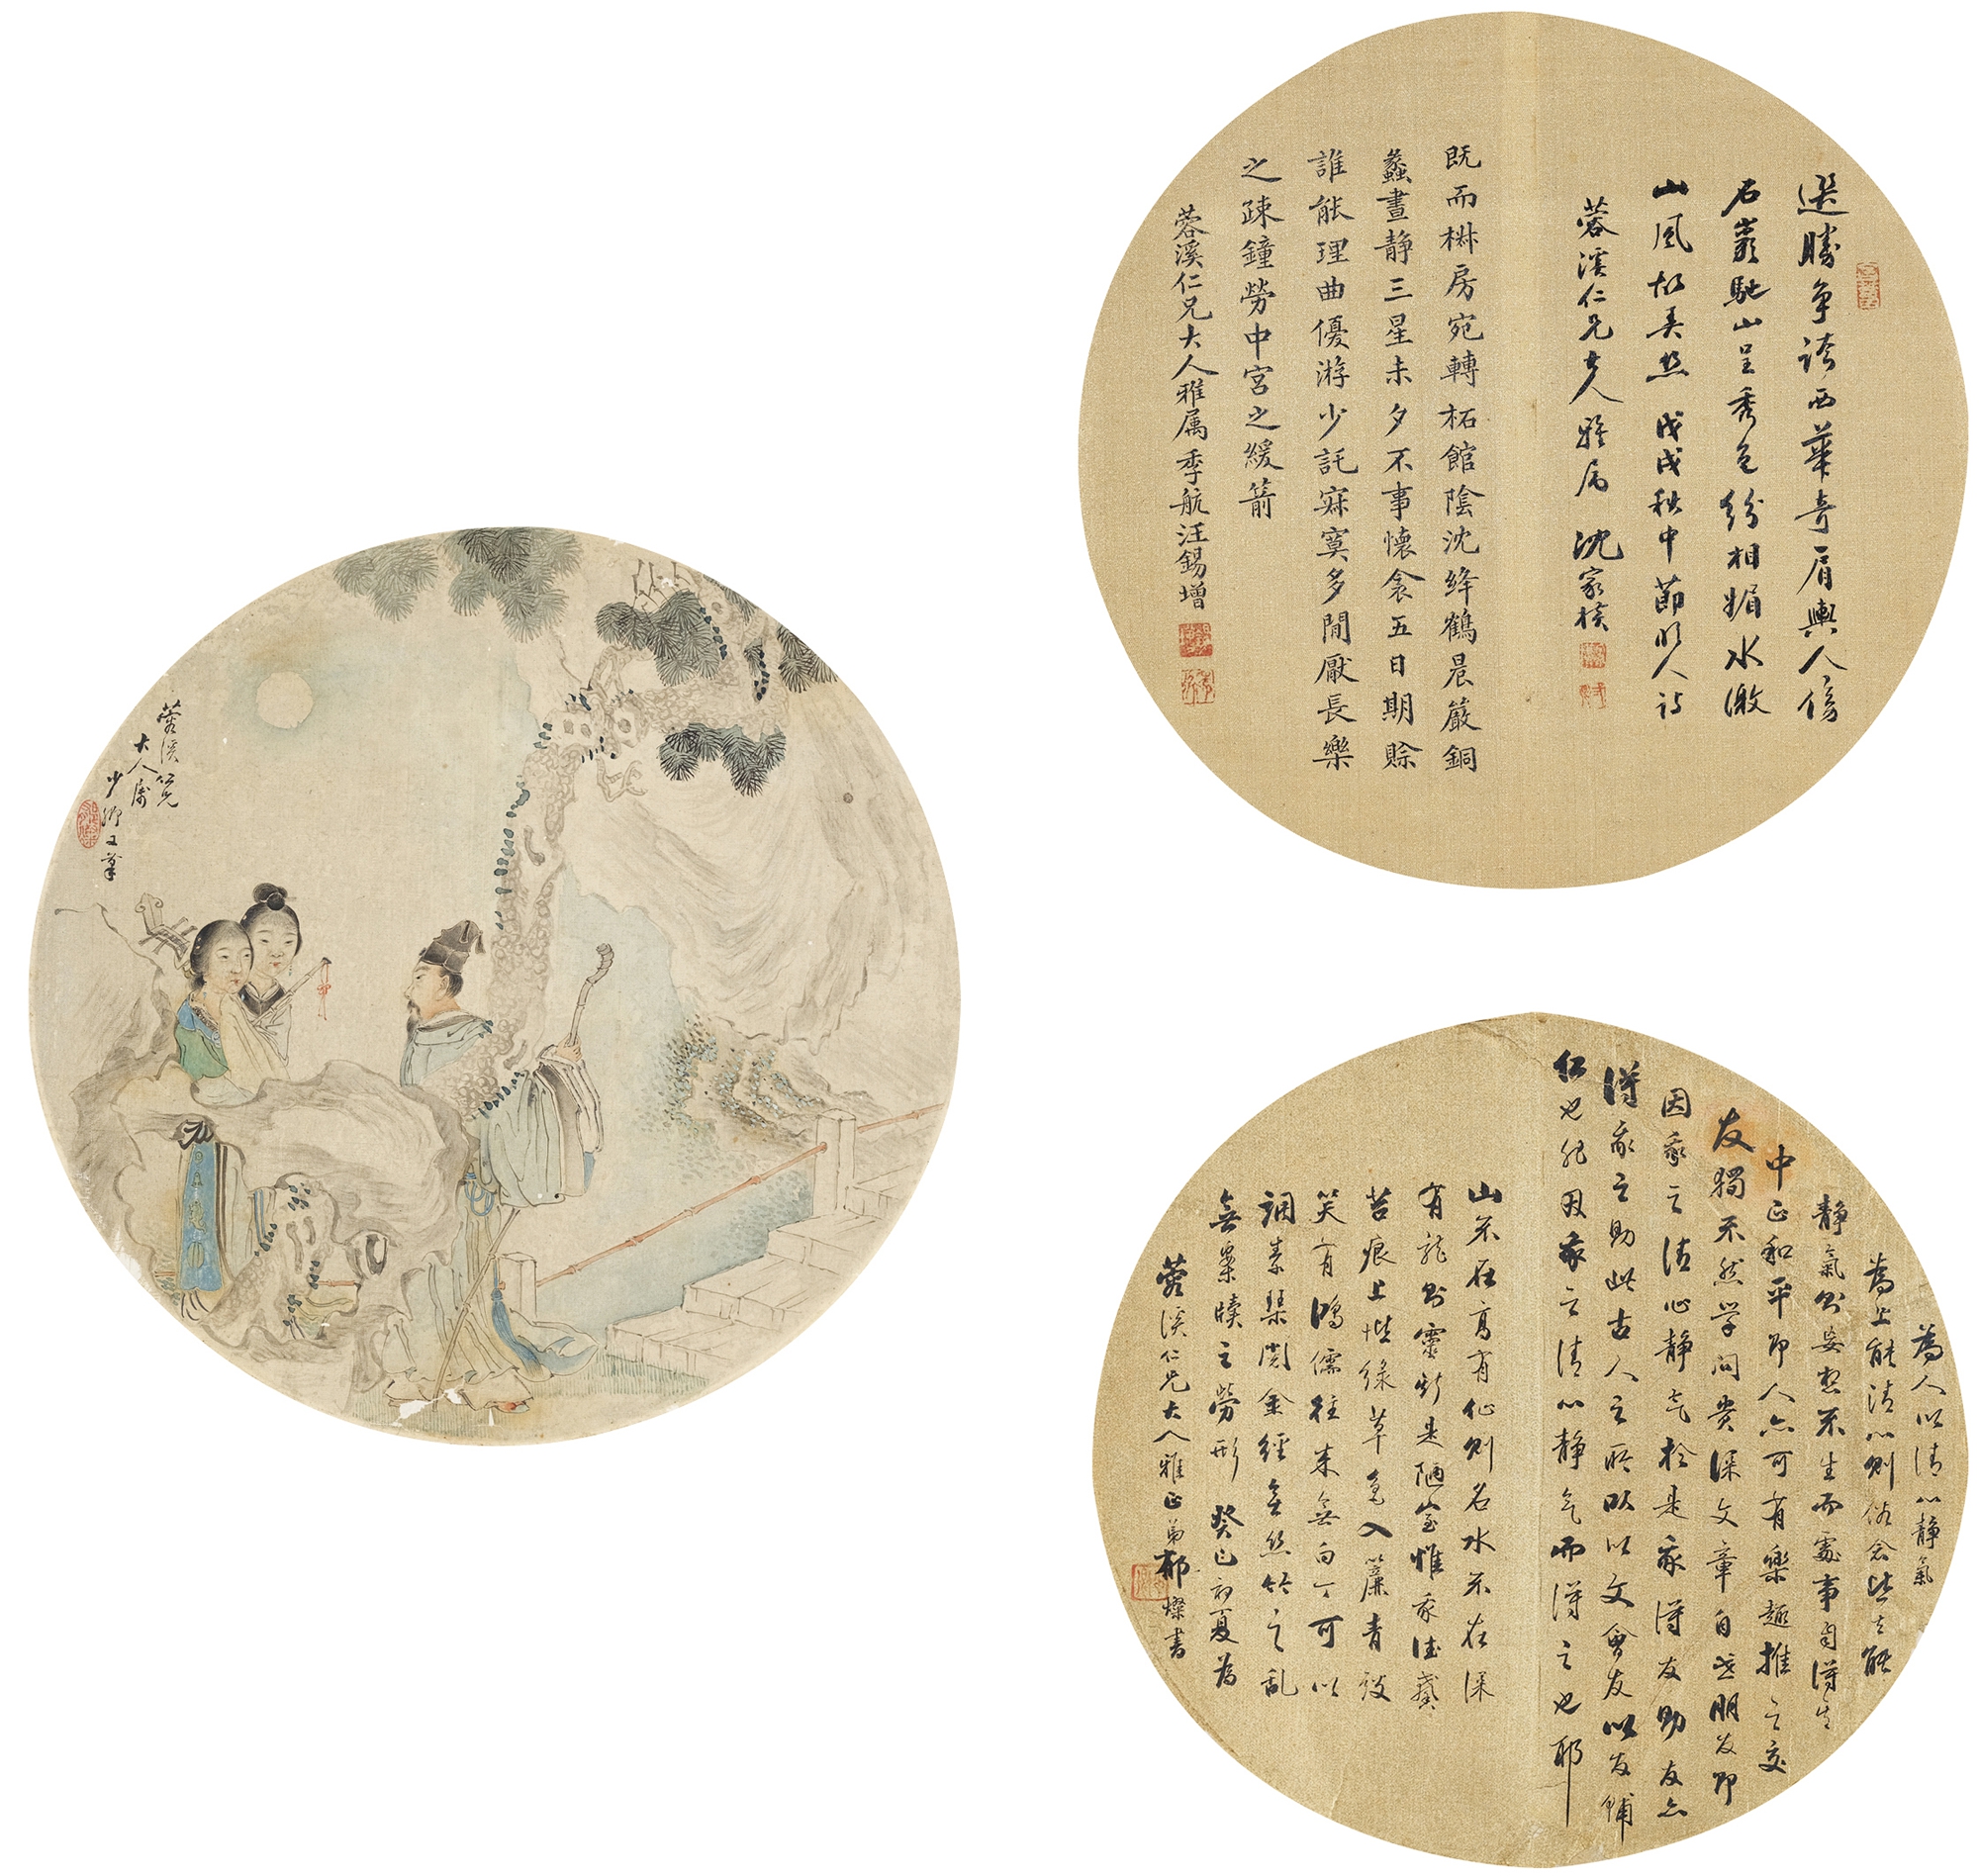 蓉溪仁兄
大人属
少卿又筆
選勝争誇西華奇肩輿人傍
石巖馳山呈秀色紛相媚水激
山風好弄然 戊戌秋中節明人詩
蓉溪仁兄大人雅属 沈家棪
既而椒房宛轉柘館陰沈絳鶴晨嚴銅
蠡晝静三星未夕不事懷衾五日期賒
誰能理曲優游少託寂寞多閒厭長樂
之疎鐘勞中宮之緩箭
蓉溪仁兄大人雅属季航汪錫增
為人以清心静氣
為上能清心則俗念皆去能
静氣則妄想不生而處事自得其
中正和平即人亦可有樂趣推之交
友獨不然学问貴深文章自古朋友即
因我之清心静气於是我得友助友亦
得我之助此古人之所以以文會友以友輔
仁也非因我之清心静气而得之也耶
山不在高有仙则名水不在深
有龍则靈斯是陋室惟我德馨
苔痕上堦緑草色入簾青談
笑有鴻儒往来無白丁可以
調素琴閲金經無丝竹之乱
無案牘之勞形 癸巳初夏為
蓉溪仁兄大人雅正弟郁燦書